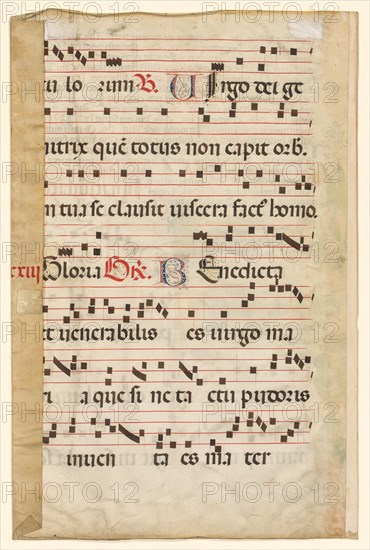 lo rum ℟. Uirgo dei ge
nitrix que totus non capit orb.
in tua se clausit uiscera facē homo.
xiij Gloria Benedicta
et uenerabilis es uirgo ma
a que si ne ta ctu pudoris
inuen ta es ma ter
PHOTO12